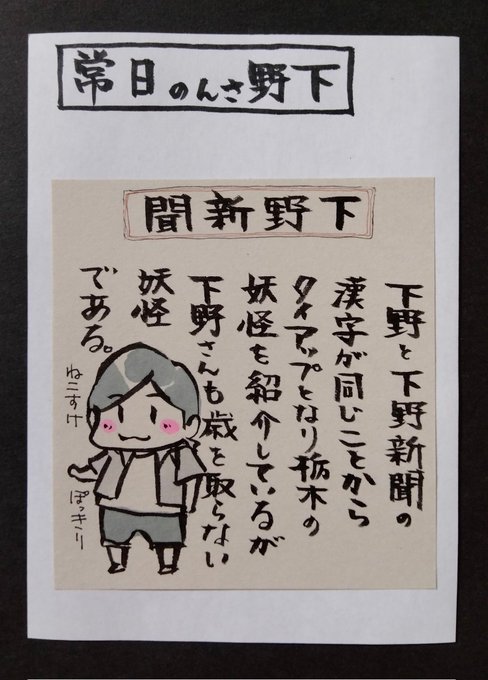 下野さんの日常
下野新聞
下野と下野新聞の
漢字が同じことから
タイアップとなり栃木の
妖怪を紹介しているが
下野さんも歳を取らない
妖怪
である。
ねこすけ
ぽっきり